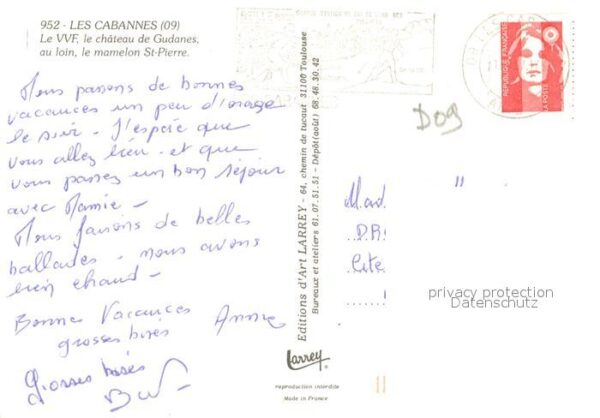 952 - LES CABANNES (09)
Le VVF, le château de Gudanes,
au loin, le mamelon St-Pierre.
Nous passons de bonnes
vacances un peu d'orage
le soir - J'espère que
vous allez bien - et que
vous passez un bon séjour
avec Mamie -
Nous faisons de belles
ballades - nous avons
bien chaud -
Bonnes Vacances
grosses bises Annie
Grosses bises
Editions d'Art LARREY - 64, chemin de tucaut 31100 Toulouse
Bureaux et ateliers 61.07.51.51 - Dépôt(août) 68.48.30.42
Larrey
reproduction interdite
Made in France
REPUBLIQUE FRANÇAISE
LA POSTE
D09
Mad
Cite
privacy protection
Datenschutz